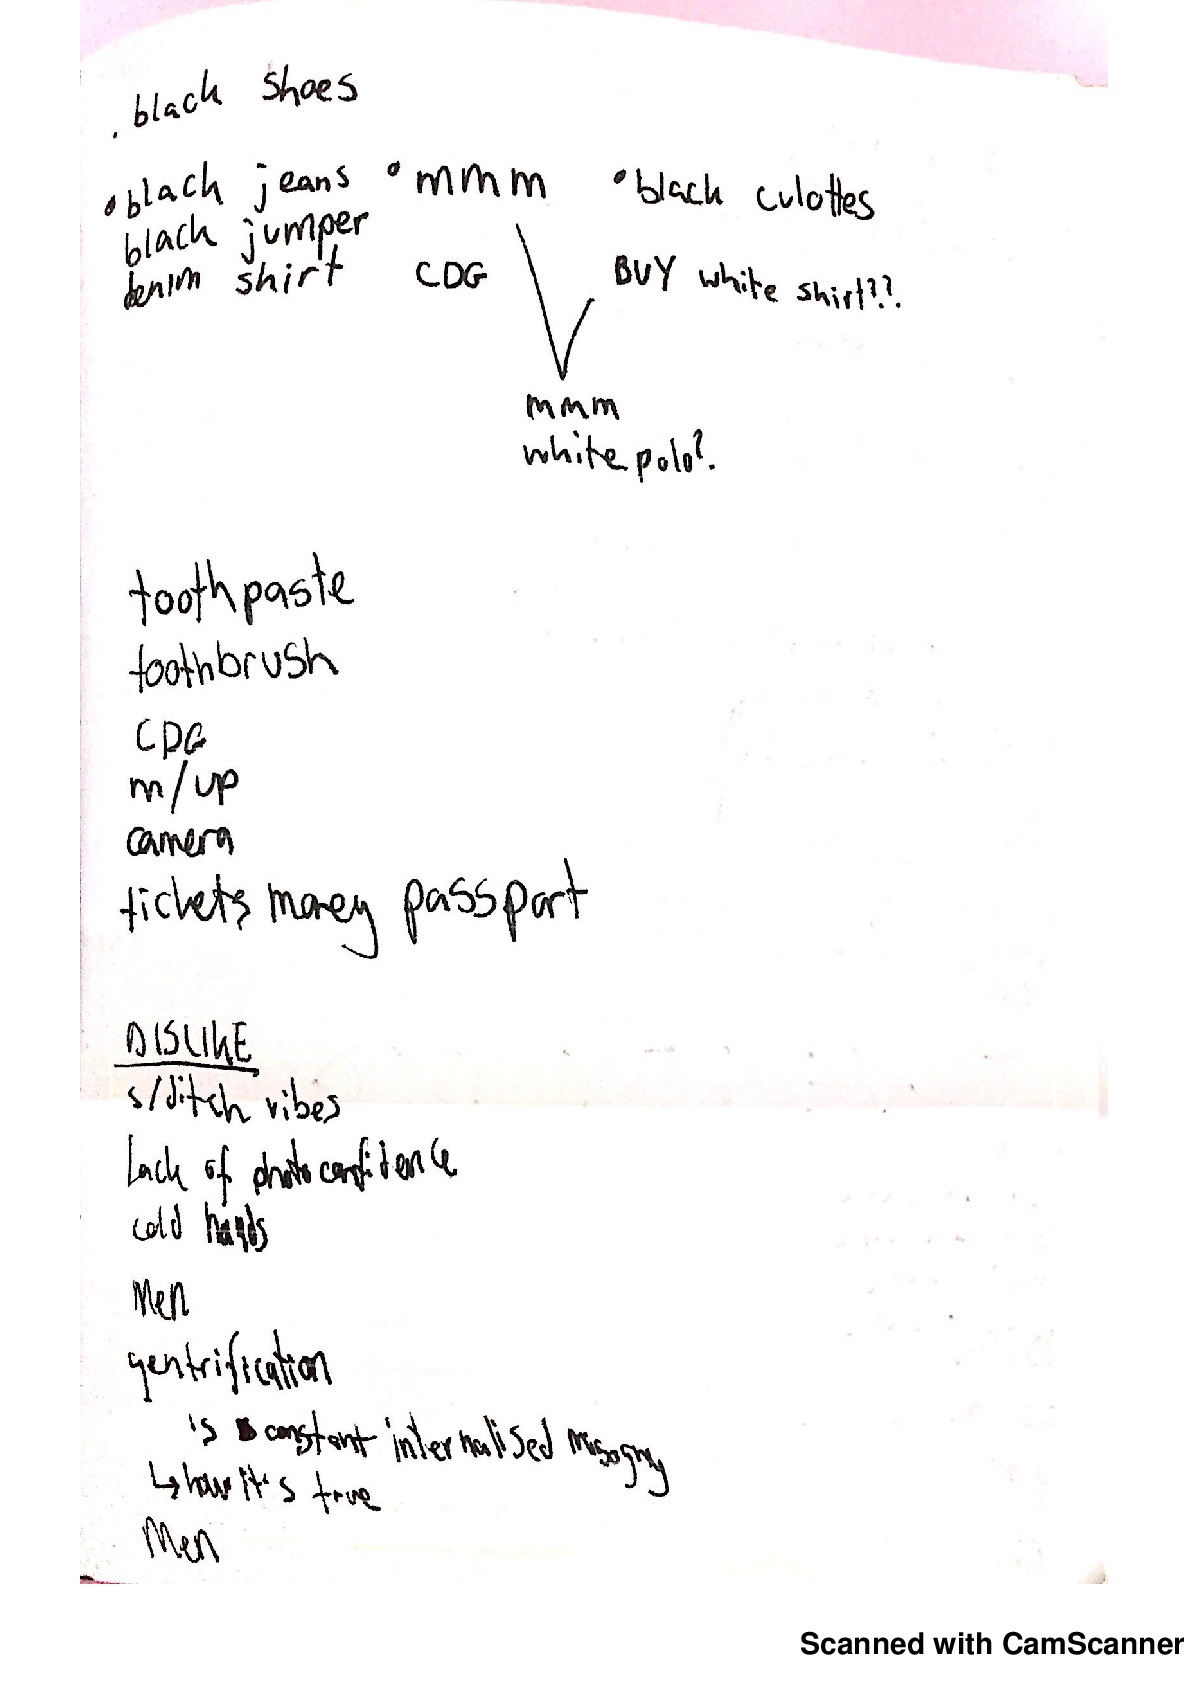 . black shoes
• black jeans • mmm • black culottes
black jumper
denim shirt CDG BUY white shirt??.
mmm
white polo?.
toothpaste
toothbrush
CDG
m/up
camera
tickets money passport
DISLIKE
s/ditch vibes
Lack of photo confidence
cold hands
Men
gentrification
is constant internalised misogny
↳ how it's true
Men
Scanned with CamScanner